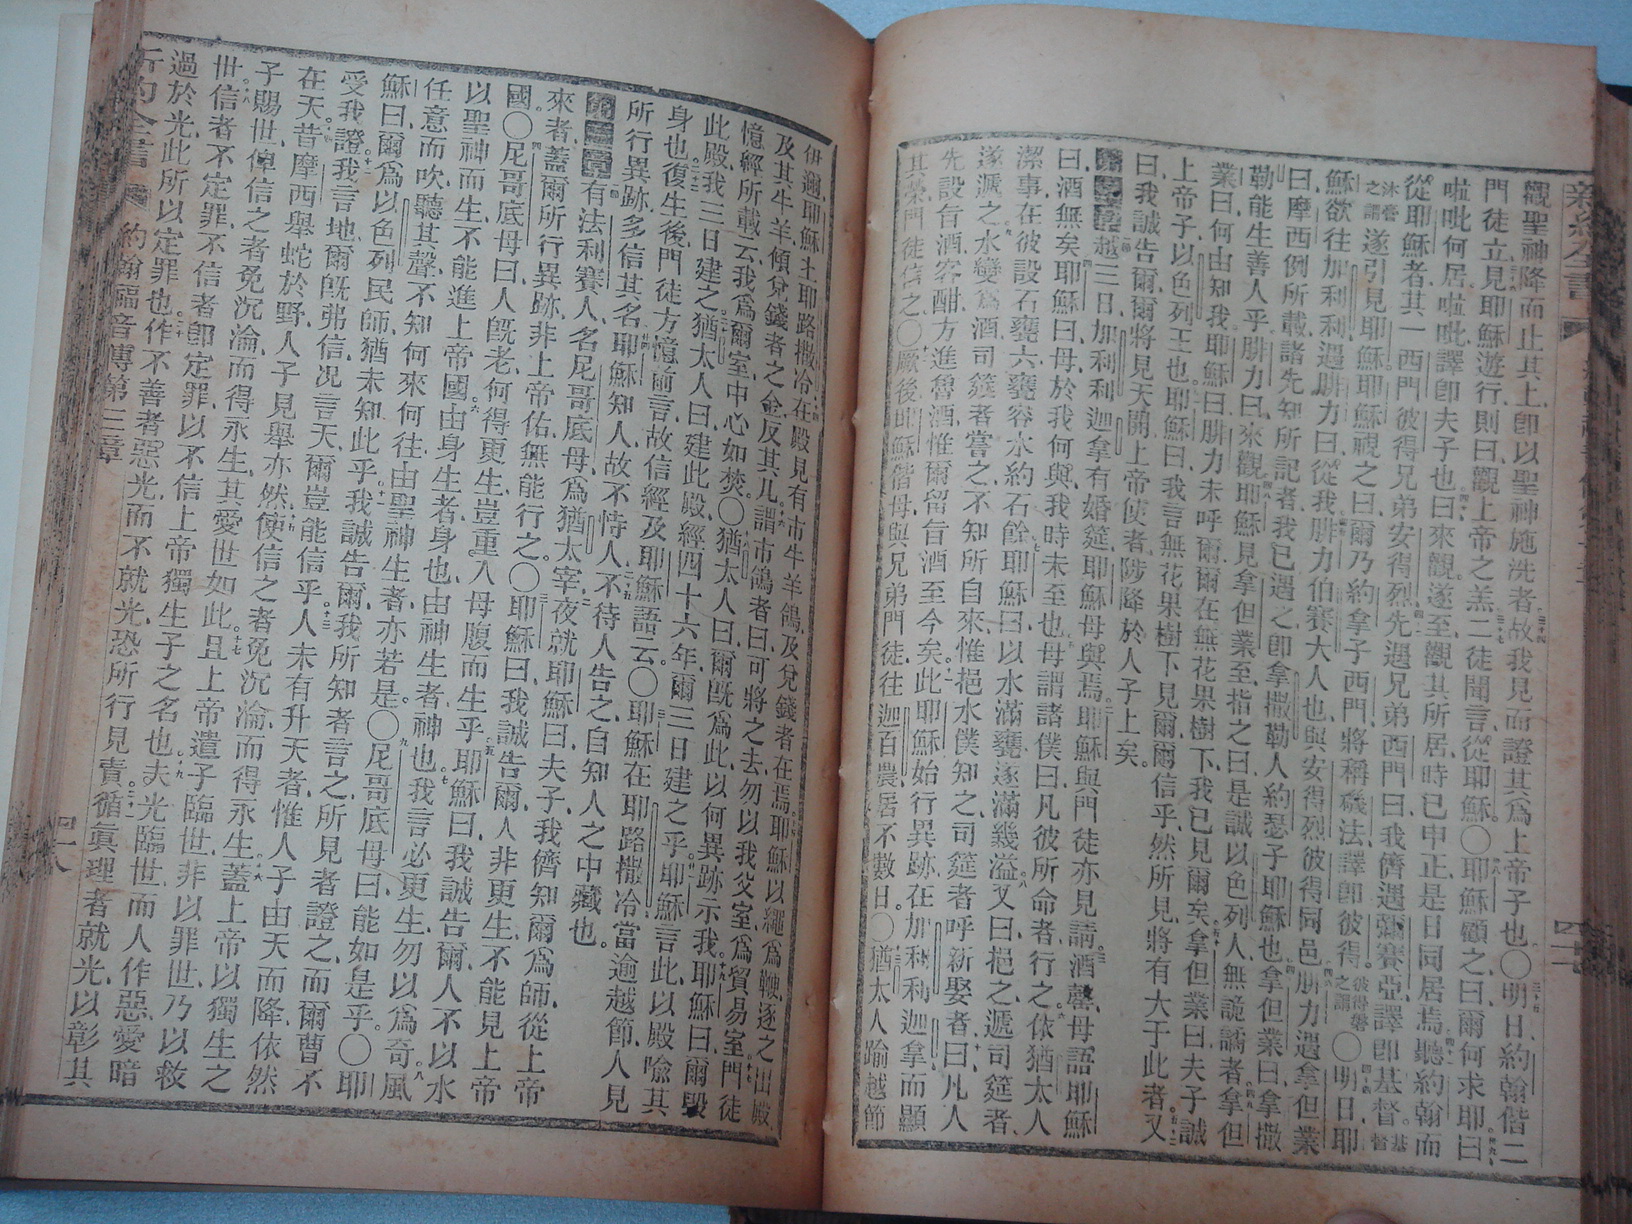 新約全書
四十七
觀聖神降而止其上、卽以聖神施洗者、故我見而證其爲上帝子也。○明日、約翰偕二
門徒立、見耶穌遊行、則曰、觀上帝之羔、二徒聞言、從耶穌。○耶穌顧之曰、爾何求耶、曰、
啦吡何居、啦吡譯卽夫子也、曰、來觀、遂至觀其所居、時已申正、是日同居焉、聽約翰而
從耶穌者、其一西門彼得兄弟安得烈、先遇兄弟西門曰、我儕遇彌賽亞、譯卽基督。基督
沐膏之謂 遂引見耶穌、耶穌視之曰、爾乃約拿子西門、將稱磯法、譯卽彼得。彼得磐之謂 ○明日、耶
穌欲往加利利、遇腓力曰、從我、腓力伯賽大人也、與安得烈彼得同邑、腓力遇拿但業
曰、摩西例所載、諸先知所記者、我已遇之、卽拿撒勒人約瑟子耶穌也、拿但業曰、拿撒
勒能生善人乎、腓力曰、來觀、耶穌見拿但業至、指之曰、是誠以色列人、無詭譎者、拿但
業曰、何由知我、耶穌曰、腓力未呼爾、爾在無花果樹下、我已見爾矣、拿但業曰、夫子誠
上帝子、以色列王也、耶穌曰、我言無花果樹下見爾、爾信乎、然所見將有大于此者、又
曰、我誠告爾、爾將見天開、上帝使者、陟降於人子上矣。
第二章 越三日、加利利迦拿有婚筵、耶穌母與焉、耶穌與門徒亦見請、酒罄、母語耶穌
曰、酒無矣、耶穌曰、母於我何與、我時未至也、母謂諸僕曰、凡彼所命者行之、依猶太人
潔事、在彼設石甕六、甕容水約石餘、耶穌曰、以水滿甕、遂滿幾溢、又曰、挹之、遞司筵者、
遂遞之、水變爲酒、司筵者嘗之、不知所自來、惟挹水僕知之、司筵者呼新娶者曰、凡人
先設旨酒、客酣、方進魯酒、惟爾留旨酒至今矣、此耶穌始行異跡、在加利利迦拿、而顯
其榮、門徒信之。○厥後耶穌偕母與兄弟門徒、往迦百農、居不數日。○猶太人踰越節
伊邇、耶穌上耶路撒冷、在殿見有市牛羊鴿、及兌錢者在焉、耶穌以繩爲鞭、逐之出殿、
及其牛羊、傾兌錢者之金、反其几、謂市鴿者曰、可將之去、勿以我父室、爲貿易室、門徒
憶經所載云、我爲爾室、中心如焚。○猶太人曰、爾旣爲此、以何異跡示我、耶穌曰、爾毀
此殿、我三日建之、猶太人曰、建此殿、經四十六年、爾三日建之乎、耶穌言此、以殿喻其
身也、復生後、門徒方憶前言、故信經、及耶穌語云。○耶穌在耶路撒冷、當逾越節、人見
所行異跡、多信其名、耶穌知人、故不恃人、不待人告之、自知人之中藏也。
第三章 有法利賽人、名尼哥底母、爲猶太宰、夜就耶穌曰、夫子、我儕知爾爲師、從上帝
來者、蓋爾所行異跡、非上帝佑、無能行之。○耶穌曰、我誠告爾、人非更生、不能見上帝
國。○尼哥底母曰、人旣老、何得更生、豈重入母腹而生乎、耶穌曰、我誠告爾、人不以水
以聖神而生、不能進上帝國、由身生者、身也、由神生者、神也、我言必更生、勿以爲奇、風
任意而吹、聽其聲、不知何來何往、由聖神生者、亦若是。○尼哥底母曰、能如是乎。○耶
穌曰、爾爲以色列民師、猶未知此乎、我誠告爾、我所知者言之、所見者證之、而爾曹不
受我證、我言地、爾旣弗信、況言天、爾豈能信乎、人未有升天者、惟人子由天而降、依然
在天、昔摩西舉蛇於野、人子見舉亦然、使信之者免沉淪、而得永生、蓋上帝以獨生之
子賜世、俾信之者免沉淪、而得永生、其愛世如此、且上帝遣子臨世、非以罪世、乃以救
世、信者不定罪、不信者卽定罪、以不信上帝獨生子之名也、夫光臨世、而人作惡、愛暗
過於光、此所以定罪也、作不善者惡光、而不就光、恐所行見責、循眞理者就光、以彰其
新約全書
約翰福音傳第三章
四十八